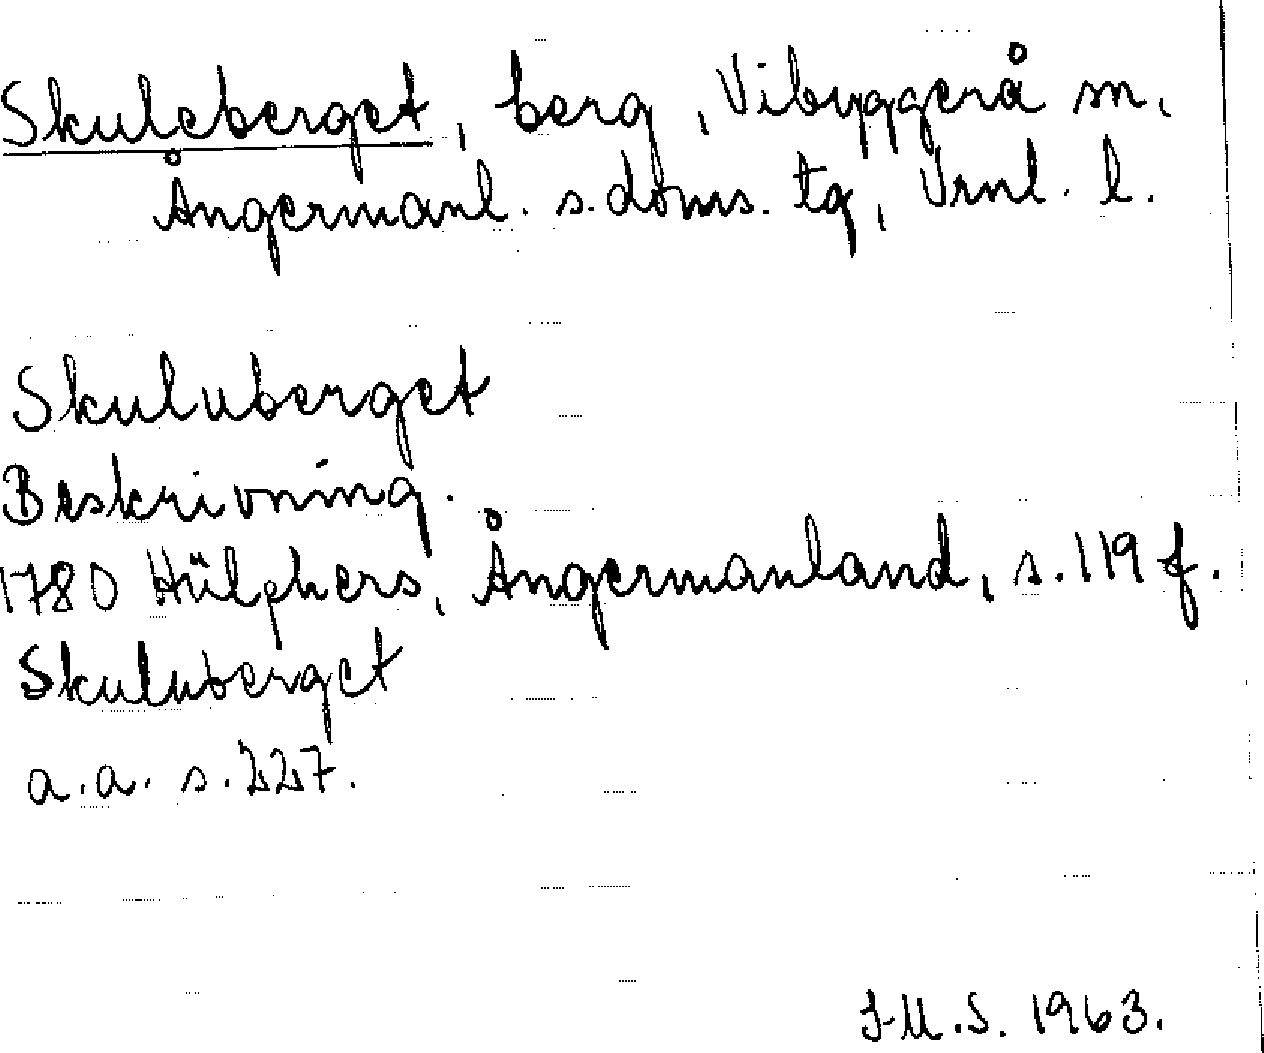 Skuleberget, berg, Vibyggerå sn,
Ångermanl. s. doms. tg, Vrnl. l.
Skuluberget
Beskrivning.
1780 Hülphers, Ångermanland, s. 119 f.
Skuluberget
a.a. s. 227.
I.M.S. 1963.